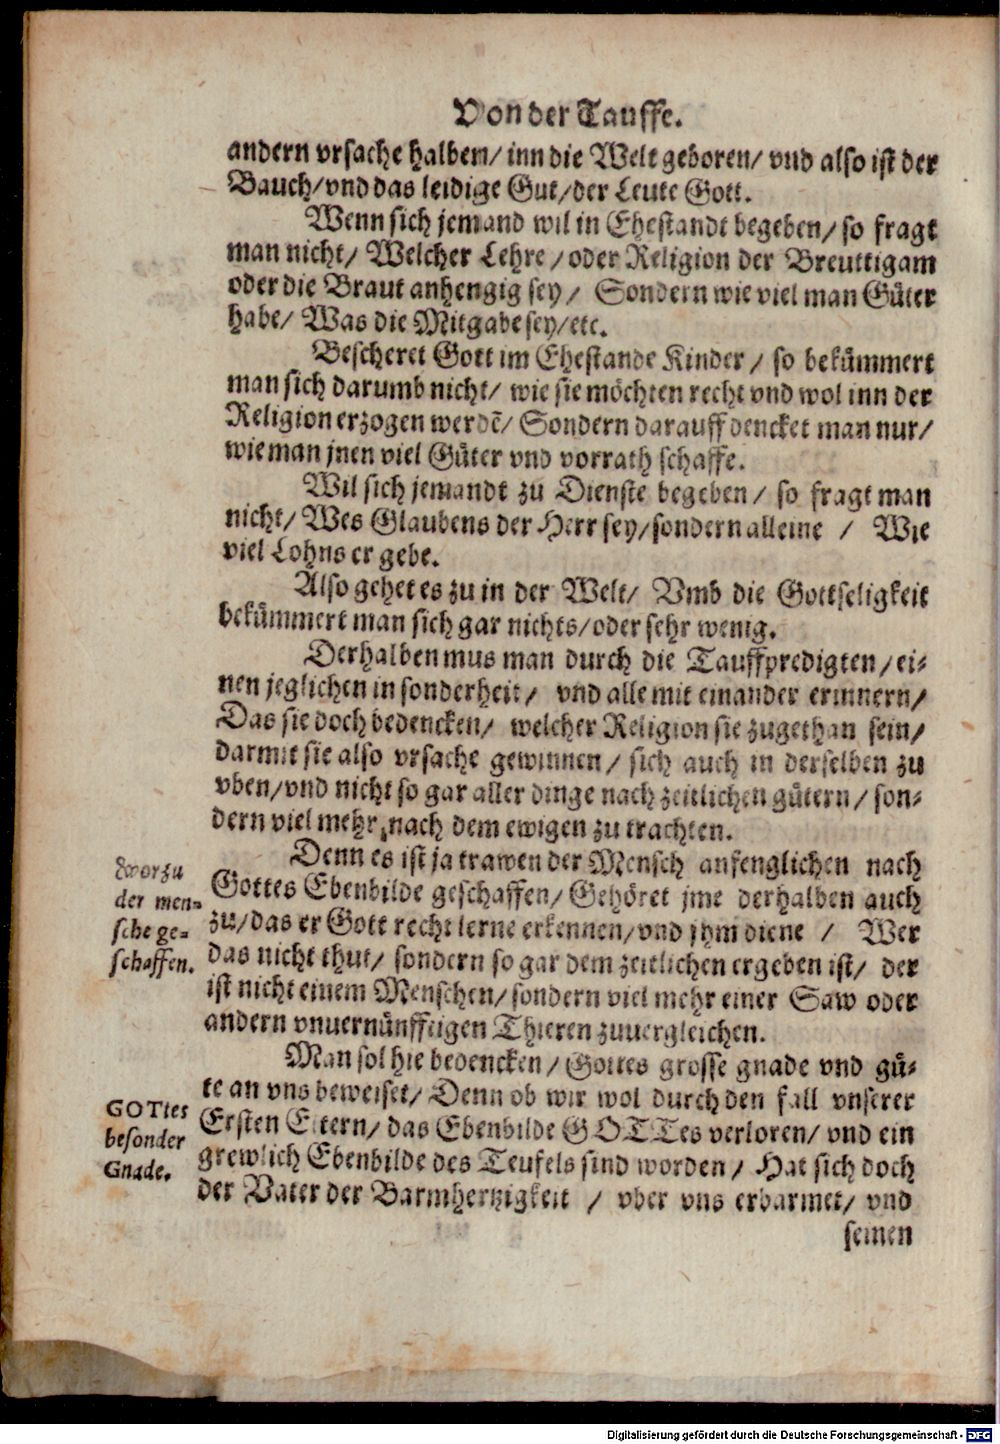 Von der Tauffe.
andern vrsache halben/ inn die Welt geboren/ vnd also ist der
Bauch/vnd das leidige Gut/der Leute Gott.
Wenn sich jemand wil in Ehestandt begeben/ so fragt
man nicht/ Welcher Lehre/ oder Religion der Breuttigam
oder die Braut anhengig sey/ Sondern wie viel man Gůter
habe/ Was die Mitgabe sey/etc.
Bescheret Gott im Ehestande Kinder/ so bekůmmert
man sich darumb nicht/ wie sie möchten recht vnd wol inn der
Religion erzogen werdẽ/ Sondern darauff dencket man nur/
wie man jnen viel Gůter vnd vorrath schaffe.
Wil sich jemandt zu Dienste begeben/ so fragt man
nicht/ Wes Glaubens der Herr sey/sondern alleine / Wie
viel Lohns er gebe.
Also gehet es zu in der Welt/ Vmb die Gottseligkeit
bekůmmert man sich gar nichts/oder sehr wenig.
Derhalben mus man durch die Tauffpredigten/ei-
nen jeglichen in sonderheit/ vnd alle mit einander erinnern/
Das sie doch bedencken/ welcher Religion sie zugethan sein/
darmit sie also vrsache gewinnen/ sich auch in derselben zu
vben/vnd nicht so gar aller dinge nach zeitlichen gůtern/ son-
dern viel mehr nach dem ewigen zu trachten.
Denn es ist ja trawen der Mensch anfenglichen nach
Gottes Ebenbilde geschaffen/ Gehöret jme derhalben auch
zu/das er Gott recht lerne erkennen/vnd jhm diene / Wer
das nicht thut/ sondern so gar dem zeitlichen ergeben ist/ der
ist nicht einem Menschen/sondern viel mehr einer Saw oder
andern vnuernůnfftigen Thieren zuuergleichen.
Worzu
der men-
sche ge-
schaffen.
Man sol hie bedencken/ Gottes grosse gnade vnd gů-
te an vns beweiset/ Denn ob wir wol durch den fall vnserer
Ersten Eltern/ das Ebenbilde GOTTes verloren/ vnd ein
grewlich Ebenbilde des Teufels sind worden/ Hat sich doch
der Vater der Barmhertzigkeit / vber vns erbarmet/ vnd
GOTtes
besonder
Gnade.
seinen
Digitalisierung gefördert durch die Deutsche Forschungsgemeinschaft - DFG